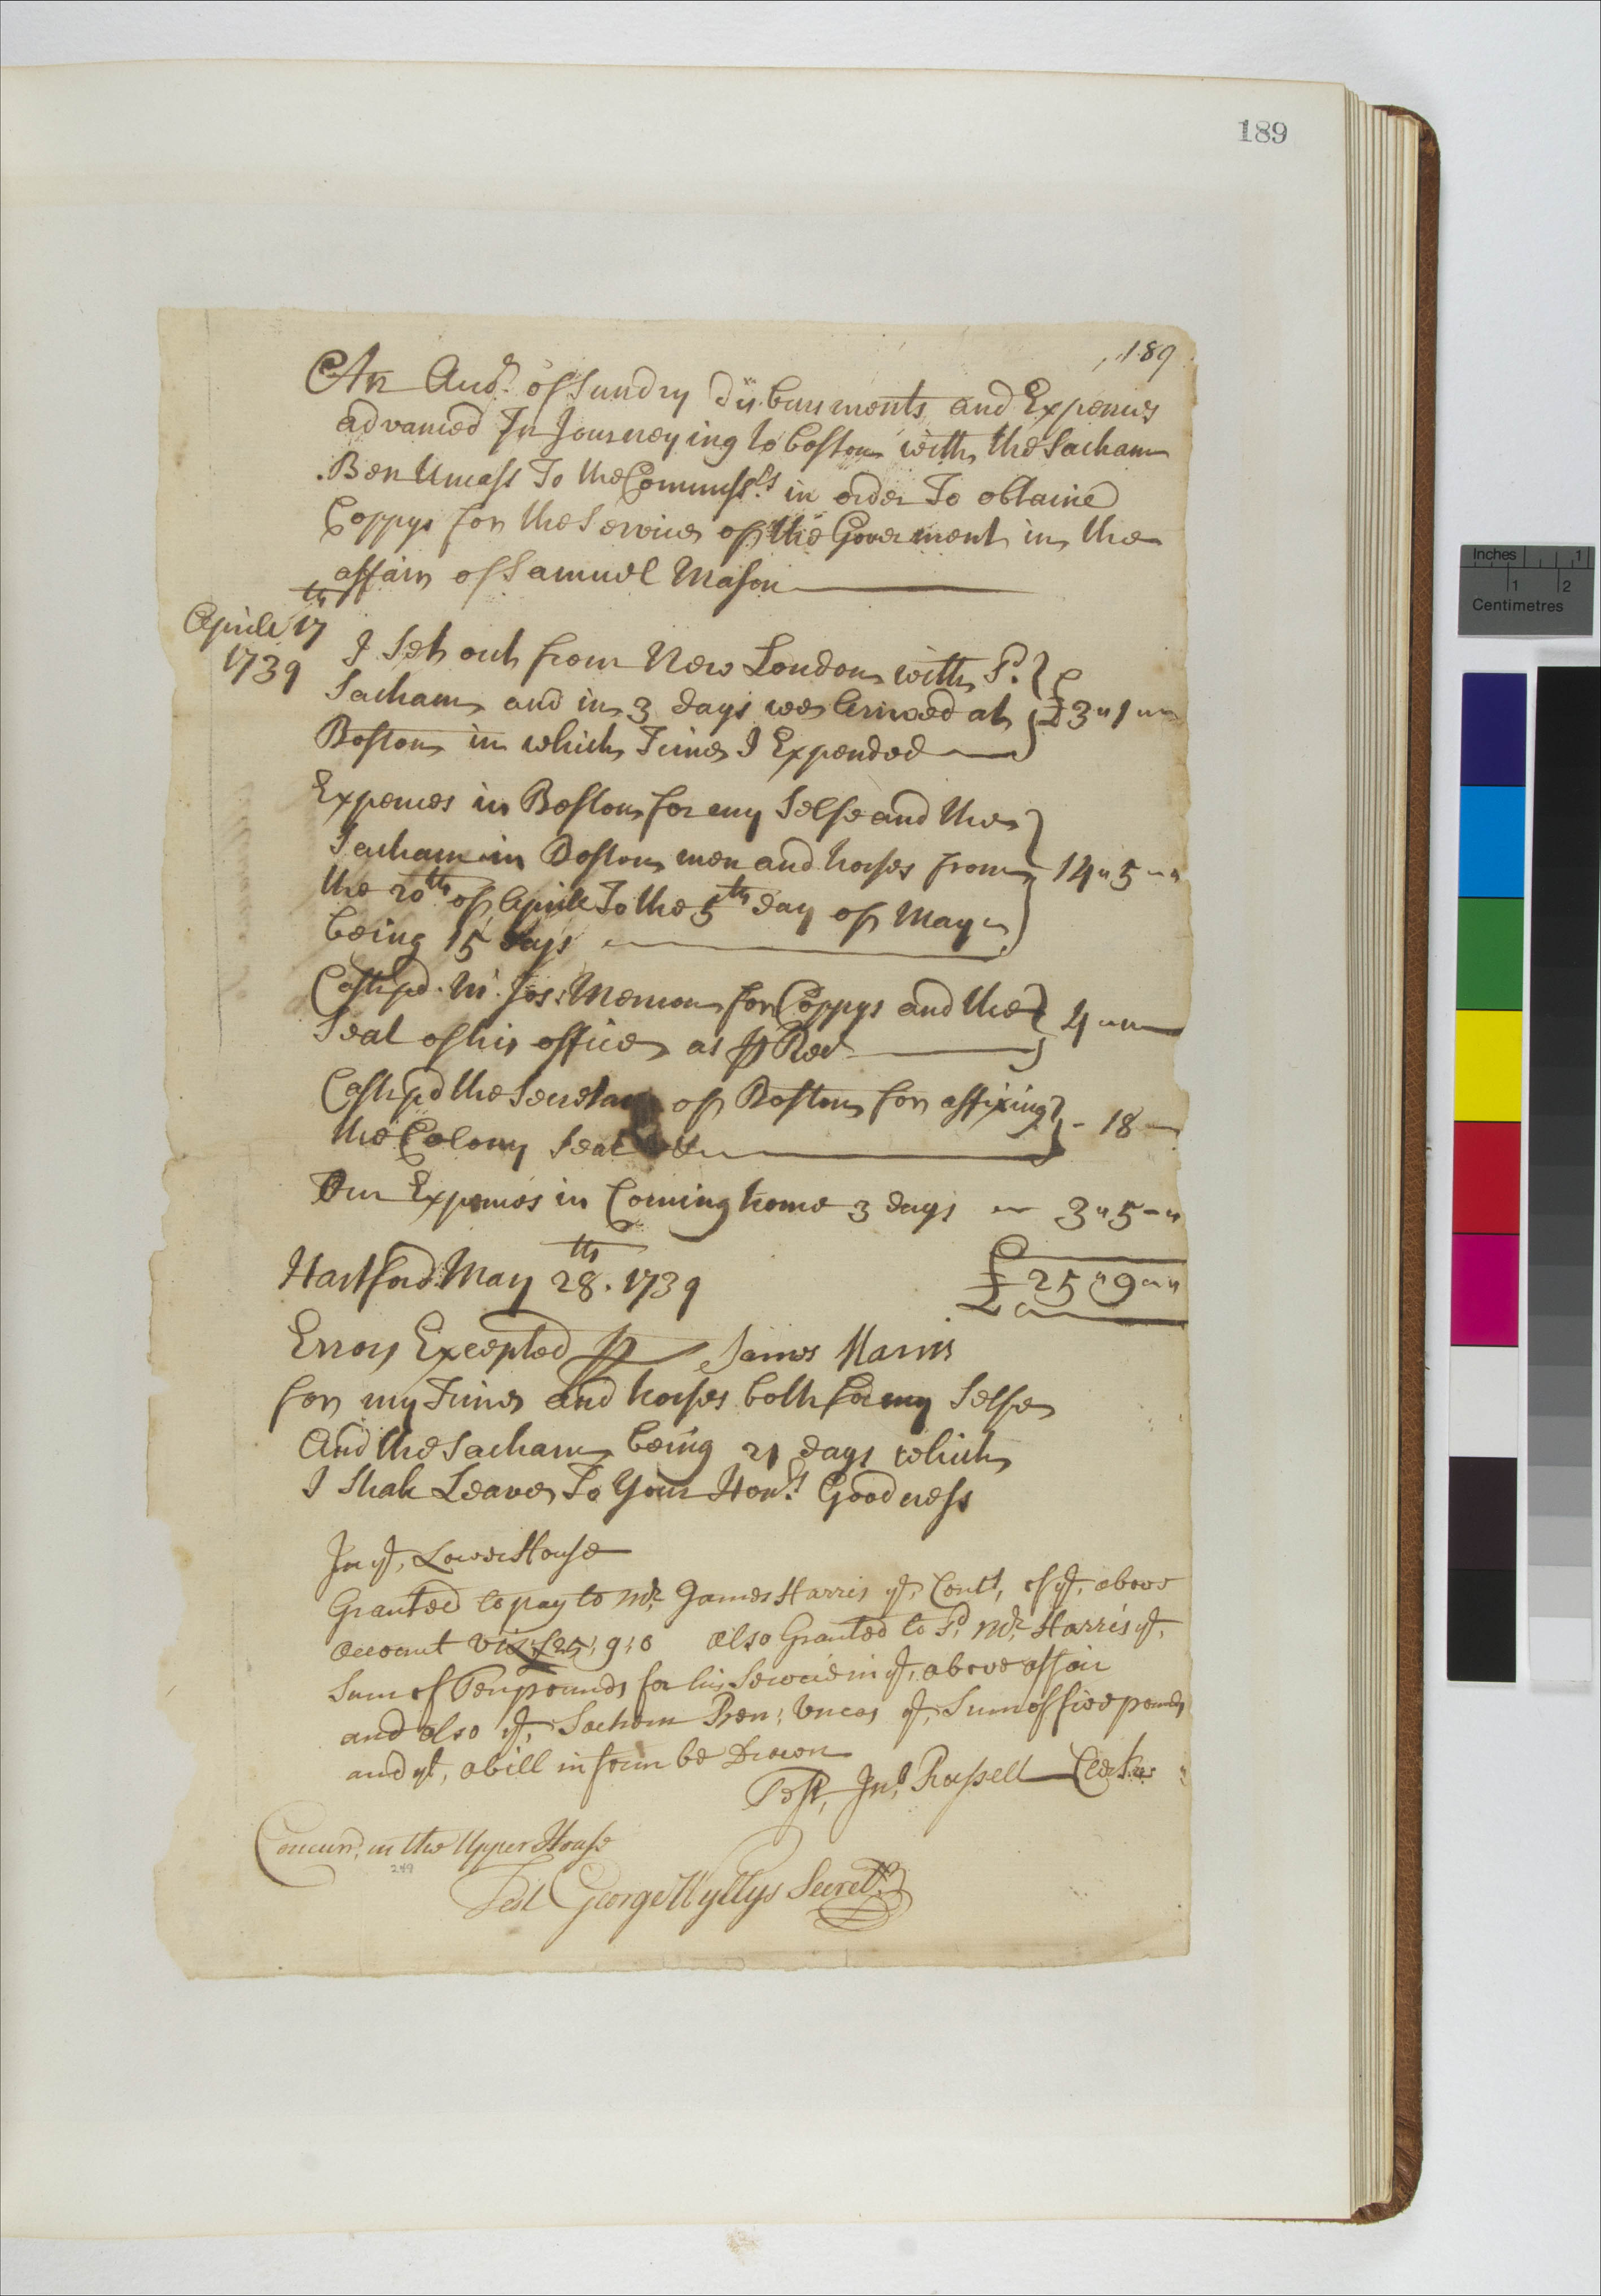 189
189
An Acc.t of Sundry Disbursments and Expences
advanced In Journeying to boston with the Sacham
Ben Uncass To the Commiss.rs in order To obtaine
Coppys for the Service of the Goverment in the
affair of Samuel Mason
Aprile 17th
1739
I Set out from New London with S.d
Sacham and in 3 days we Arrived at £3"1""
Boston in which Time I Expended
Expences in Boston for my Selfe and the
Sacham in Boston men and horses from 14"5""
the 20th of Aprile To the 5th day of May
being 15 days
Cash pd. Mr. Jos: Merion for Coppys and the 4""
Seal of his office as p Rec.t
Cash pd the Secretary of Boston for affixing - 18
the Colony Seal
Our Expences in Coming home 3 days 3"5"
Hartford May 28th. 1739 £25"9""
Errors Excepted p James Harris
for my Time and horses both for my Selfe
And the Sacham being 21 days which
I Shall Leave To Your Hon.rs Goodness
In ye, Lower House
Granted to pay to Mr. James Harris ye, Cont,ts of ye, above
account viz; £25; 9; 0 also Granted to Sd, Mr. Harris ye,
Sum of Ten pounds for his Service in ye, above affair
and also ye, Sachem Ben; Uncas ye, Sum of five pounds
and yt, a bill in form be Drawn
Test, Jn,o Russell Clerk
Concurrd, in the Upper House
249
Test George Wyllys Secret.ry
Inches 1
1 2
Centimetres